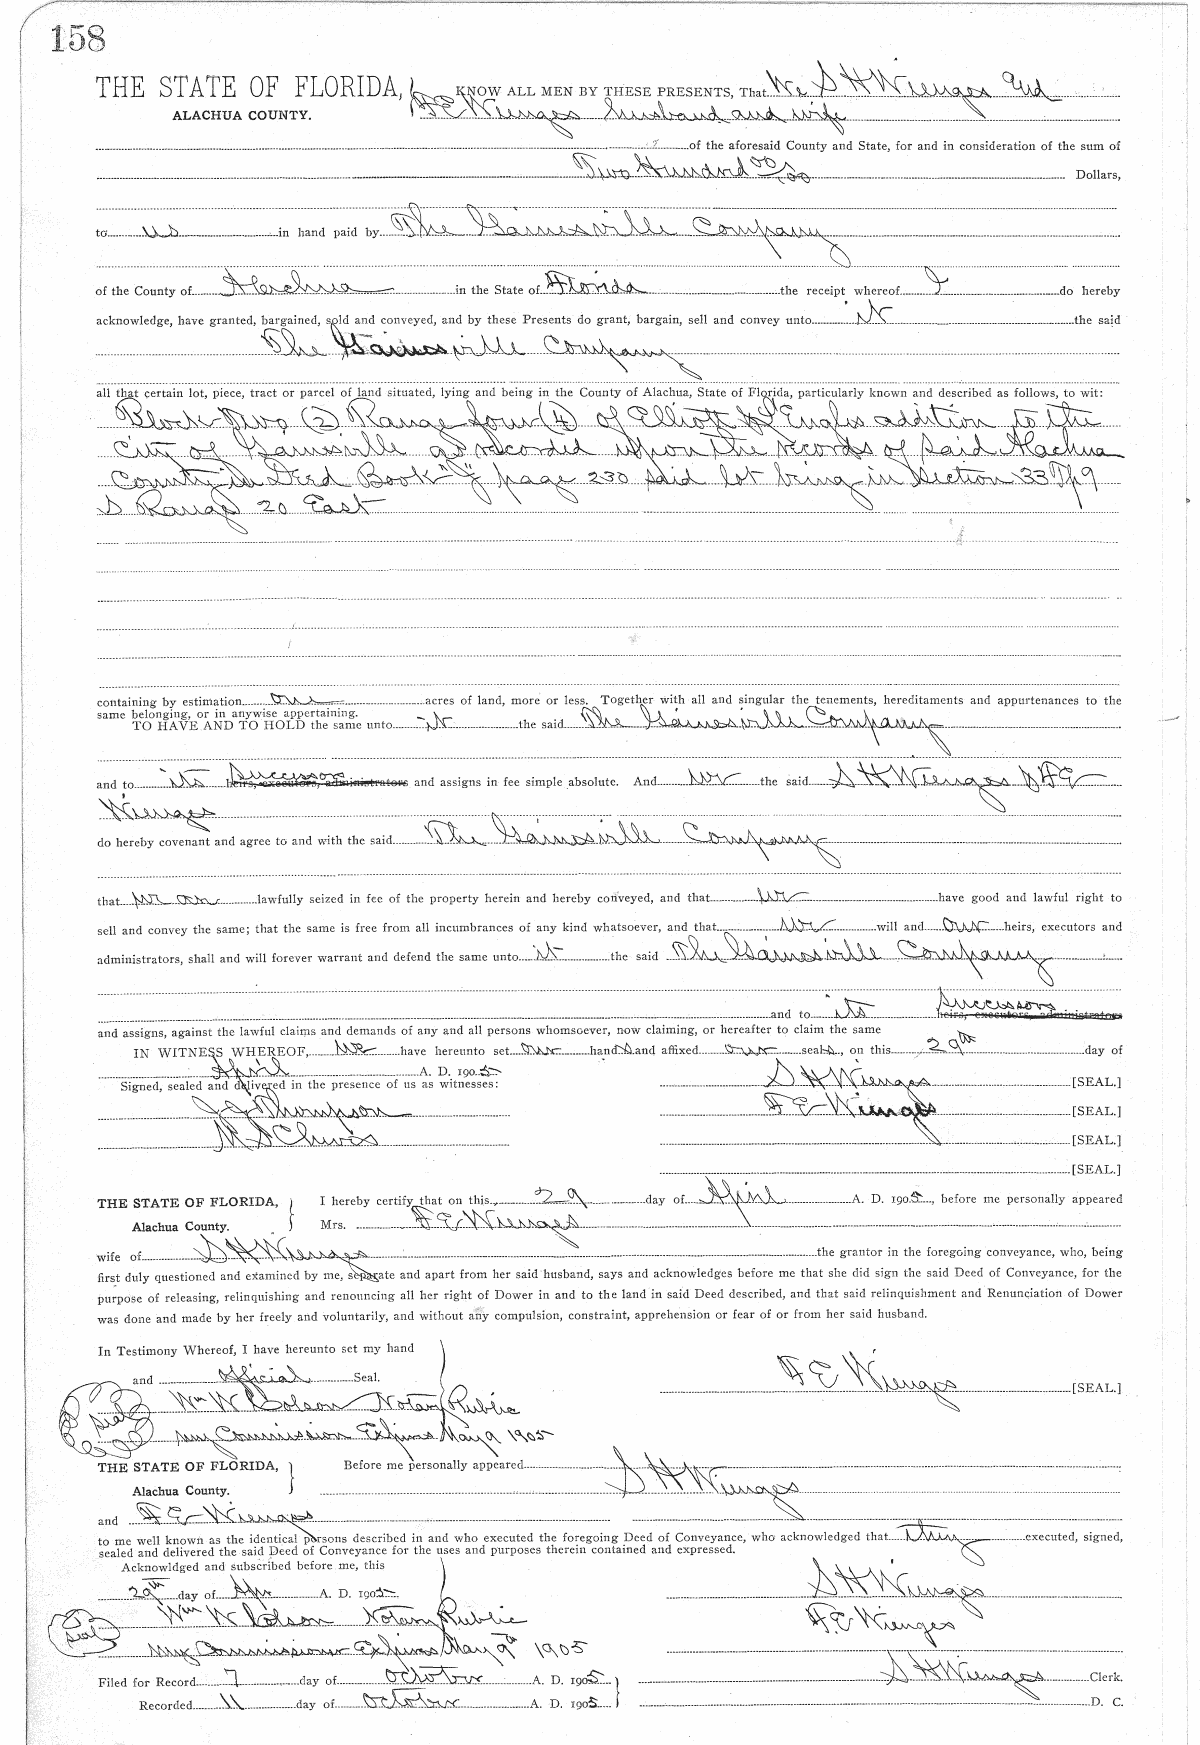 158
THE STATE OF FLORIDA, KNOW ALL MEN BY THESE PRESENTS, That We S H Wienges and
ALACHUA COUNTY. F E Wienges husband and wife
of the aforesaid County and State, for and in consideration of the sum of
Two Hundred 00/100 Dollars,
to us in hand paid by The Gainesville Company
of the County of Alachua in the State of Florida the receipt whereof I do hereby
acknowledge, have granted, bargained, sold and conveyed, and by these Presents do grant, bargain, sell and convey unto it the said
The Gainesville Company
all that certain lot, piece, tract or parcel of land situated, lying and being in the County of Alachua, State of Florida, particularly known and described as follows, to wit:
Block Two (2) Range four (4) of Elliott & L'Engles addition to the
City of Gainesville as recorded upon the records of said Alachua
County in Deed Book page 230 said lot being in Section 33 Tp 9
S Range 20 East
containing by estimation one acres of land, more or less. Together with all and singular the tenements, hereditaments and appurtenances to the
same belonging, or in anywise appertaining.
TO HAVE AND TO HOLD the same unto it the said The Gainesville Company
and to its Successors heirs, executors, administrators and assigns in fee simple absolute. And we the said S H Wienges & F E
Wienges
do hereby covenant and agree to and with the said The Gainesville Company
that we are lawfully seized in fee of the property herein and hereby conveyed, and that we have good and lawful right to
sell and convey the same; that the same is free from all incumbrances of any kind whatsoever, and that we will and our heirs, executors and
administrators, shall and will forever warrant and defend the same unto it the said The Gainesville Company
and to its Successors heirs, executors, administrators
and assigns, against the lawful claims and demands of any and all persons whomsoever, now claiming, or hereafter to claim the same
IN WITNESS WHEREOF, we have hereunto set our hands and affixed our seals, on this 29th day of
April A. D. 1905
Signed, sealed and delivered in the presence of us as witnesses: S H Wienges [SEAL.]
J J Thompson F E Wienges [SEAL.]
[SEAL.]
[SEAL.]
THE STATE OF FLORIDA, I hereby certify that on this 29 day of April A. D. 1905, before me personally appeared
Alachua County. Mrs. F E Wienges
wife of S H Wienges the grantor in the foregoing conveyance, who, being
first duly questioned and examined by me, separate and apart from her said husband, says and acknowledges before me that she did sign the said Deed of Conveyance, for the
purpose of releasing, relinquishing and renouncing all her right of Dower in and to the land in said Deed described, and that said relinquishment and Renunciation of Dower
was done and made by her freely and voluntarily, and without any compulsion, constraint, apprehension or fear of or from her said husband.
In Testimony Whereof, I have hereunto set my hand
and official Seal. F E Wienges [SEAL.]
seal Wm W Colson Notary Public
My Commission Expires May 9 1905
THE STATE OF FLORIDA, Before me personally appeared S H Wienges
Alachua County.
and F E Wienges
to me well known as the identical persons described in and who executed the foregoing Deed of Conveyance, who acknowledged that they executed, signed,
sealed and delivered the said Deed of Conveyance for the uses and purposes therein contained and expressed.
Acknowldged and subscribed before me, this
29th day of Apr A. D. 1905 S H Wienges
seal Wm W Colson Notary Public F. E Wienges
My Commission Expires May 9th 1905
Filed for Record 7 day of October A. D. 1905 S H Wienges Clerk.
Recorded 11 day of October A. D. 1905 D. C.